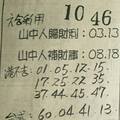 10 46
山中人賜財例：03.13
山中人補財庫：08.18
01.05.12.15.
17.25.22.35.
37.44.45.47.
60.04.41.13.